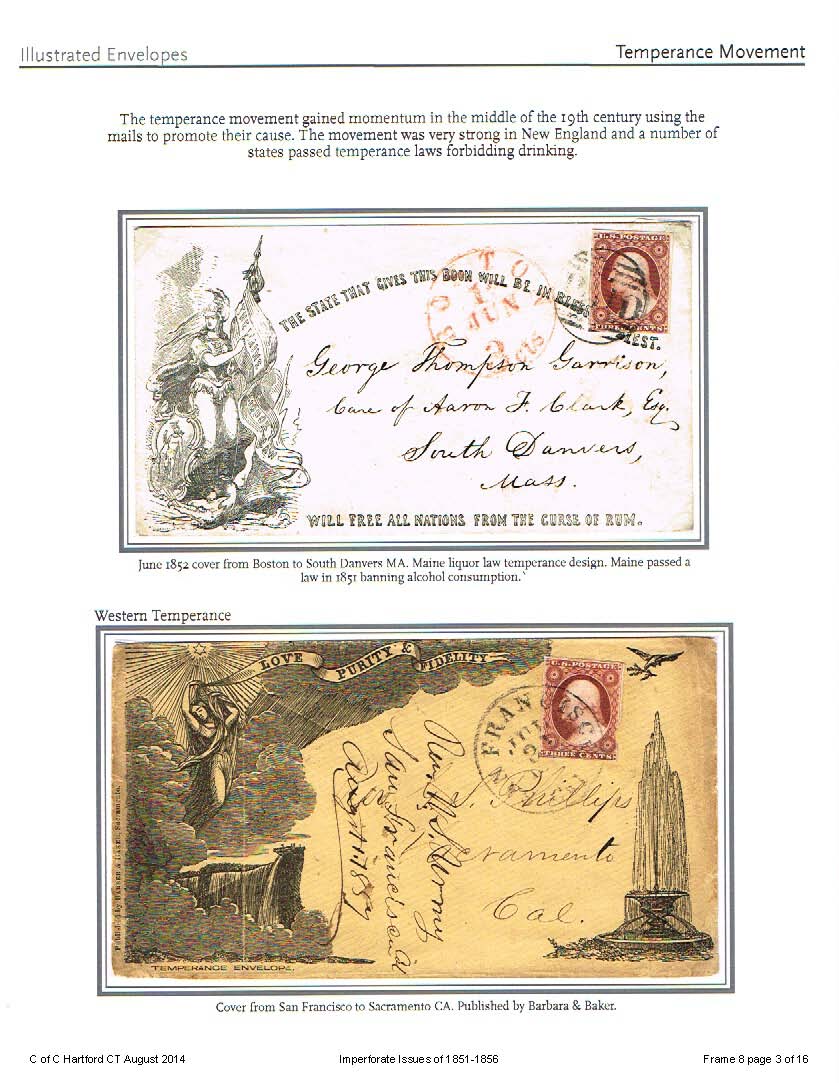 Illustrated Envelopes
Temperance Movement
The temperance movement gained momentum in the middle of the 19th century using the
mails to promote their cause. The movement was very strong in New England and a number of
states passed temperance laws forbidding drinking.
THE STATE THAT GIVES THIS BOON WILL BE IN
EST.
BOSTO
JUN
3 cts
U.S. POSTAGE
THREE CENTS
George Thompson Garrison,
Care of Aaron F. Clark, Esq.
South Danvers,
Mass.
WILL FREE ALL NATIONS FROM THE CURSE OF RUM.
June 1852 cover from Boston to South Danvers MA. Maine liquor law temperance design. Maine passed a
law in 1851 banning alcohol consumption.
Western Temperance
LOVE PURITY & FIDELITY
U.S. POSTAGE
THREE CENTS
N FRANCISC
JUL
S. Phillips
Sacramento
Cal.
San Francisco
Published by BARBER & BAKER, Sacramento.
TEMPERANCE ENVELOPE.
Cover from San Francisco to Sacramento CA. Published by Barbara & Baker.
C of C Hartford CT August 2014
Imperforate Issues of 1851-1856
Frame 8 page 3 of 16